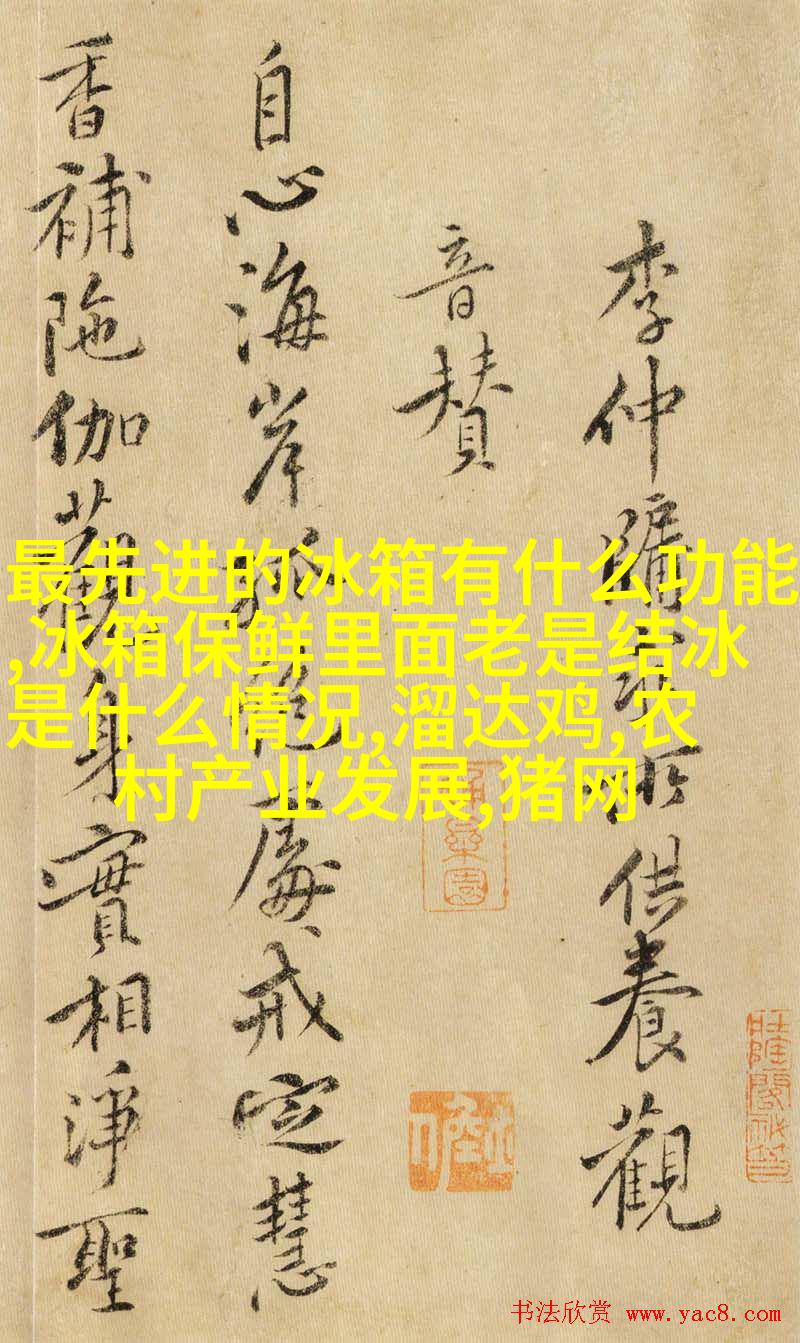 李仲躅家所供養觀
音贊
自心海岸孤絶處戒定慧
香補陁伽觀身實相淨聖
最先进的冰箱有什么功能
,冰箱保鲜里面老是结冰
是什么情况,溜达鸡,农
村产业发展,猪网
书法欣赏 www.yac8.com